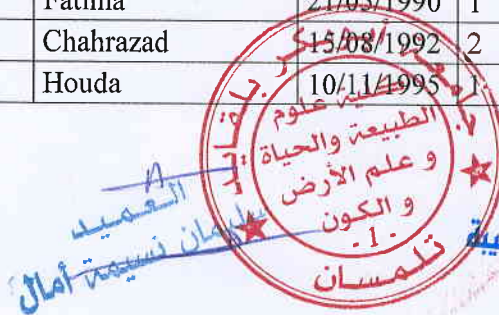 Fatima 21/05/1990 1
Chahrazad 15/08/1992 2
Houda 10/11/1995 1
جامعة أبو بكر بلقايد
كلية علوم
الطبيعة والحياة
و علم الأرض
و الكون
- 1 -
تلمسان
العميد
نسيمة أمال